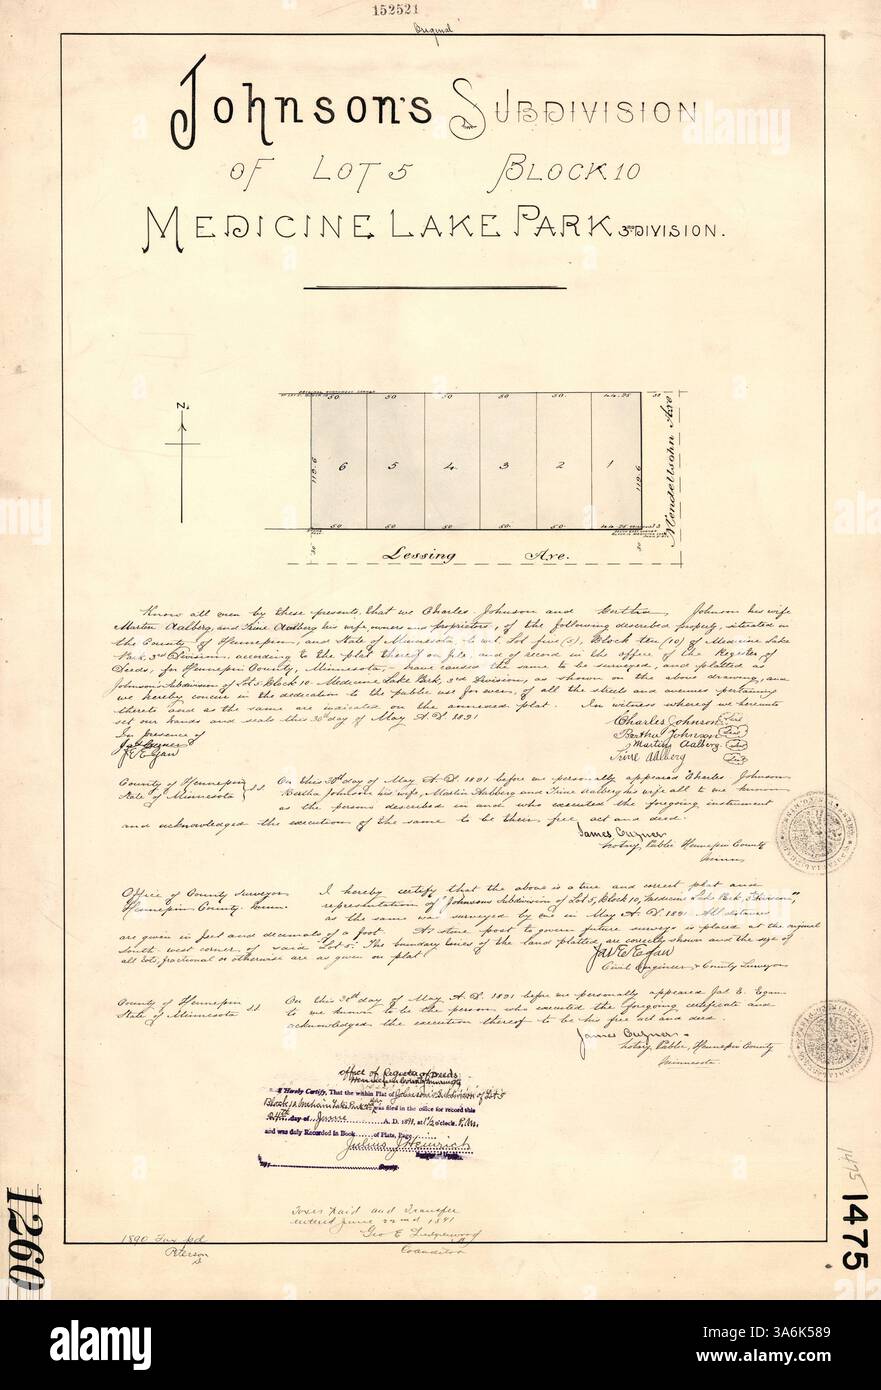 152521
Original
Johnson's Subdivision
of Lot 5 Block 10
Medicine Lake Park 3rd Division.
N
50. 50 50 50 50. 44.25 30
118.6 6 5 4 3 2 1 118.6
Mendellsohn Ave
50 50 50 50. 50 44.25
30 30
Lessing Ave.
Know all men by these presents, that we Charles Johnson and Bertha Johnson his wife
Martin Aalberg, and Trine Aalberg his wife, owners and proprietors, of the following described property, situated in
the County of Hennepin, and State of Minnesota, to wit, Lot five (5), Block ten (10) of Medicine Lake
Park, 3rd Division, according to the plat thereof on file, and of record in the office of the Register of
Deeds, for Hennepin County, Minnesota, have caused the same to be surveyed, and platted as
Johnson's Subdivision of Lot 5 Block 10 Medicine Lake Park, 3rd Division, as shown on the above drawing, and
we hereby concur in the dedication to the public use forever, of all the streets and avenues pertaining
thereto and as the same are indicated on the annexed plat. In witness whereof we hereunto
set our hands and seals this 30th day of May A.D. 1891
In presence of
Charles Johnson Seal
Bertha Johnson Seal
Martin Aalberg Seal
Trine Aalberg Seal
J E Egan
County of Hennepin
State of Minnesota } S.S.
On this 30th day of May A.D. 1891 before me personally appeared Charles Johnson
Bertha Johnson his wife, Martin Aalberg and Trine Aalberg his wife all to me known
as the persons described in and who executed the foregoing instrument
and acknowledged the execution of the same to be their free act and deed.
James
Notary Public Hennepin County
Minn
Office of County Surveyor
Hennepin County Minn.
I hereby certify that the above is a true and correct plat and
representation of "Johnsons Subdivision of Lot 5, Block 10, Medicine Lake Park, 3rd Division",
as the same was surveyed by me in May A.D. 1891. All distances
are given in feet and decimals of a foot. A stone post to govern future surveys is placed at the original
south west corner of said "Lot 5." The boundary lines of the land platted, are correctly shown and the size of
all lots, fractional or otherwise are as given on plat.
Jas E Egan
Civil Engineer & County Surveyor
County of Hennepin
State of Minnesota S.S.
On this 30th day of May A.D. 1891 before me personally appeared Jas E. Egan
to me known to be the person who executed the foregoing certificate and
acknowledged the execution thereof to be his free act and deed.
James
Notary Public, Hennepin County
Minnesota
Office of Register of Deeds
Hennepin County Minnesota
I Hereby Certify, That the within Plat of Johnson's Subdivision of Lot 5
Block 10 Medicine Lake Park was filed in the office for record this
24th day of June A.D. 1891, at 1 1/2 o'clock P.M.
and was duly Recorded in Book of Plats, Page
Julius J Heinrich
Taxes paid and Transfer
entered June 22nd 1891
Geo E
1890 Tax pd
Peterson
1260
1475
1475
alamy
Image ID: 3A6K589
www.alamy.com